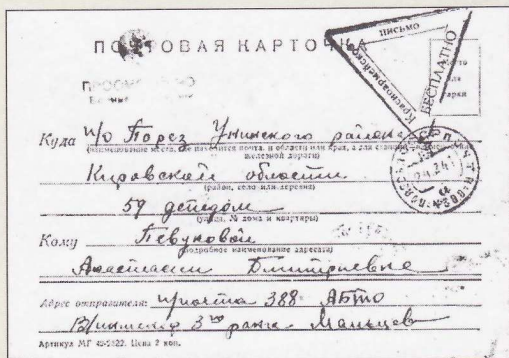 ПОЧТОВАЯ КАРТОЧКА
ПИСЬМО
Красноармейское
БЕСПЛАТНО
Место
для
марки
Куда п/о Порез Унинского района
(наименование места, где находится почта, и области или края, а для станций
железной дороги)
Кировской области
(район, село или деревня)
59 детдом
(улица, № дома и квартиры)
Кому Певуновой
(подробное наименование адресата)
Анастасии Дмитриевне
Адрес отправителя: п/почта 388 АБТО
В/инженер 3го ранга Мальцев
Артикул МГ 43-2822. Цена 2 коп.